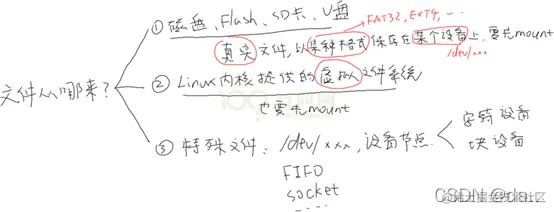 文件从哪来?
① 磁盘、Flash、SD卡、U盘
FAT32, EXT4, ...
真实文件,以某种格式保存在某个设备上,要先mount
/dev/xxx
② Linux内核提供的虚拟文件系统
也要先mount
③ 特殊文件: /dev/xxx, 设备节点
字符设备
块设备
FIFO
socket
....
CSDN @da